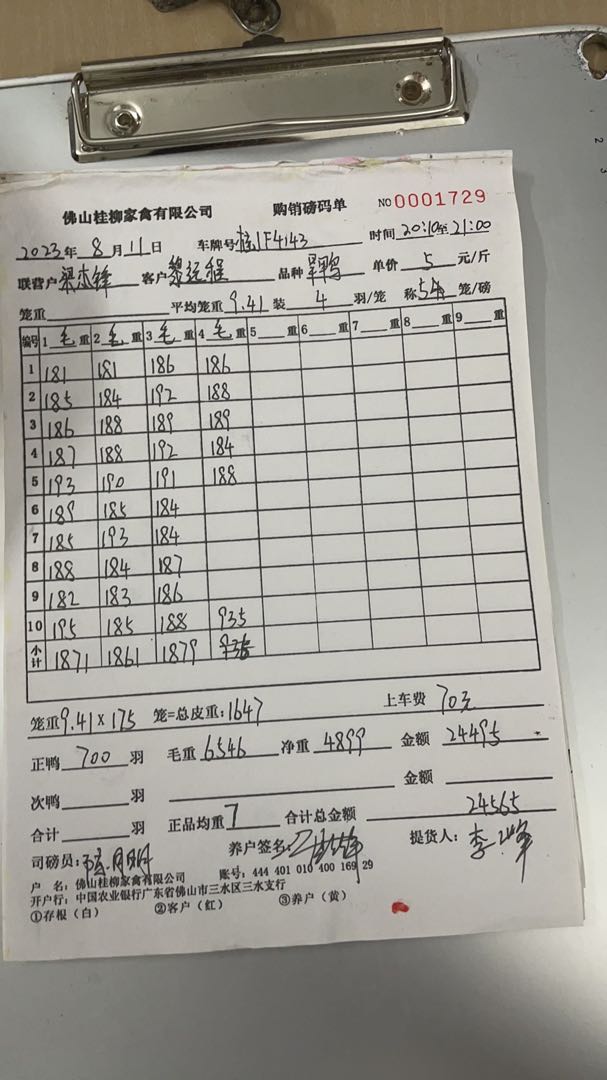 佛山桂柳家禽有限公司 购销磅码单 NO 0001729
2023年 8 月 11 日 车牌号: 桂JF4143 时间 20:10至21:00
联营户 梁杰锋 客户 黎运程 品种 单价 5 元/斤
笼重 平均笼重 9.41 装 4 羽/笼 称 5 笼/磅
编号 1 毛 重 2 毛 重 3 毛 重 4 毛 重 5 重 6 重 7 重 8 重 9 重
1 181 181 186 186
2 185 184 192 188
3 186 188 189 189
4 187 188 192 184
5 193 190 191 188
6 189 185 184
7 185 193 184
8 188 184 187
9 182 183 186
10 195 185 188 935
小计 1871 1861 1879
笼重 9.41×175 笼=总皮重: 1647 上车费 70元
正鸭 700 羽 毛重 6546 净重 4899 金额 24495
次鸭 羽 金额
合计 羽 正品均重 7 合计总金额 24565
司磅员: 养户签名: 提货人: 李
户 名: 佛山桂柳家禽有限公司 账号: 444 401 010 400 169 29
开户行: 中国农业银行广东省佛山市三水区三水支行
①存根(白) ②客户(红) ③养户(黄)